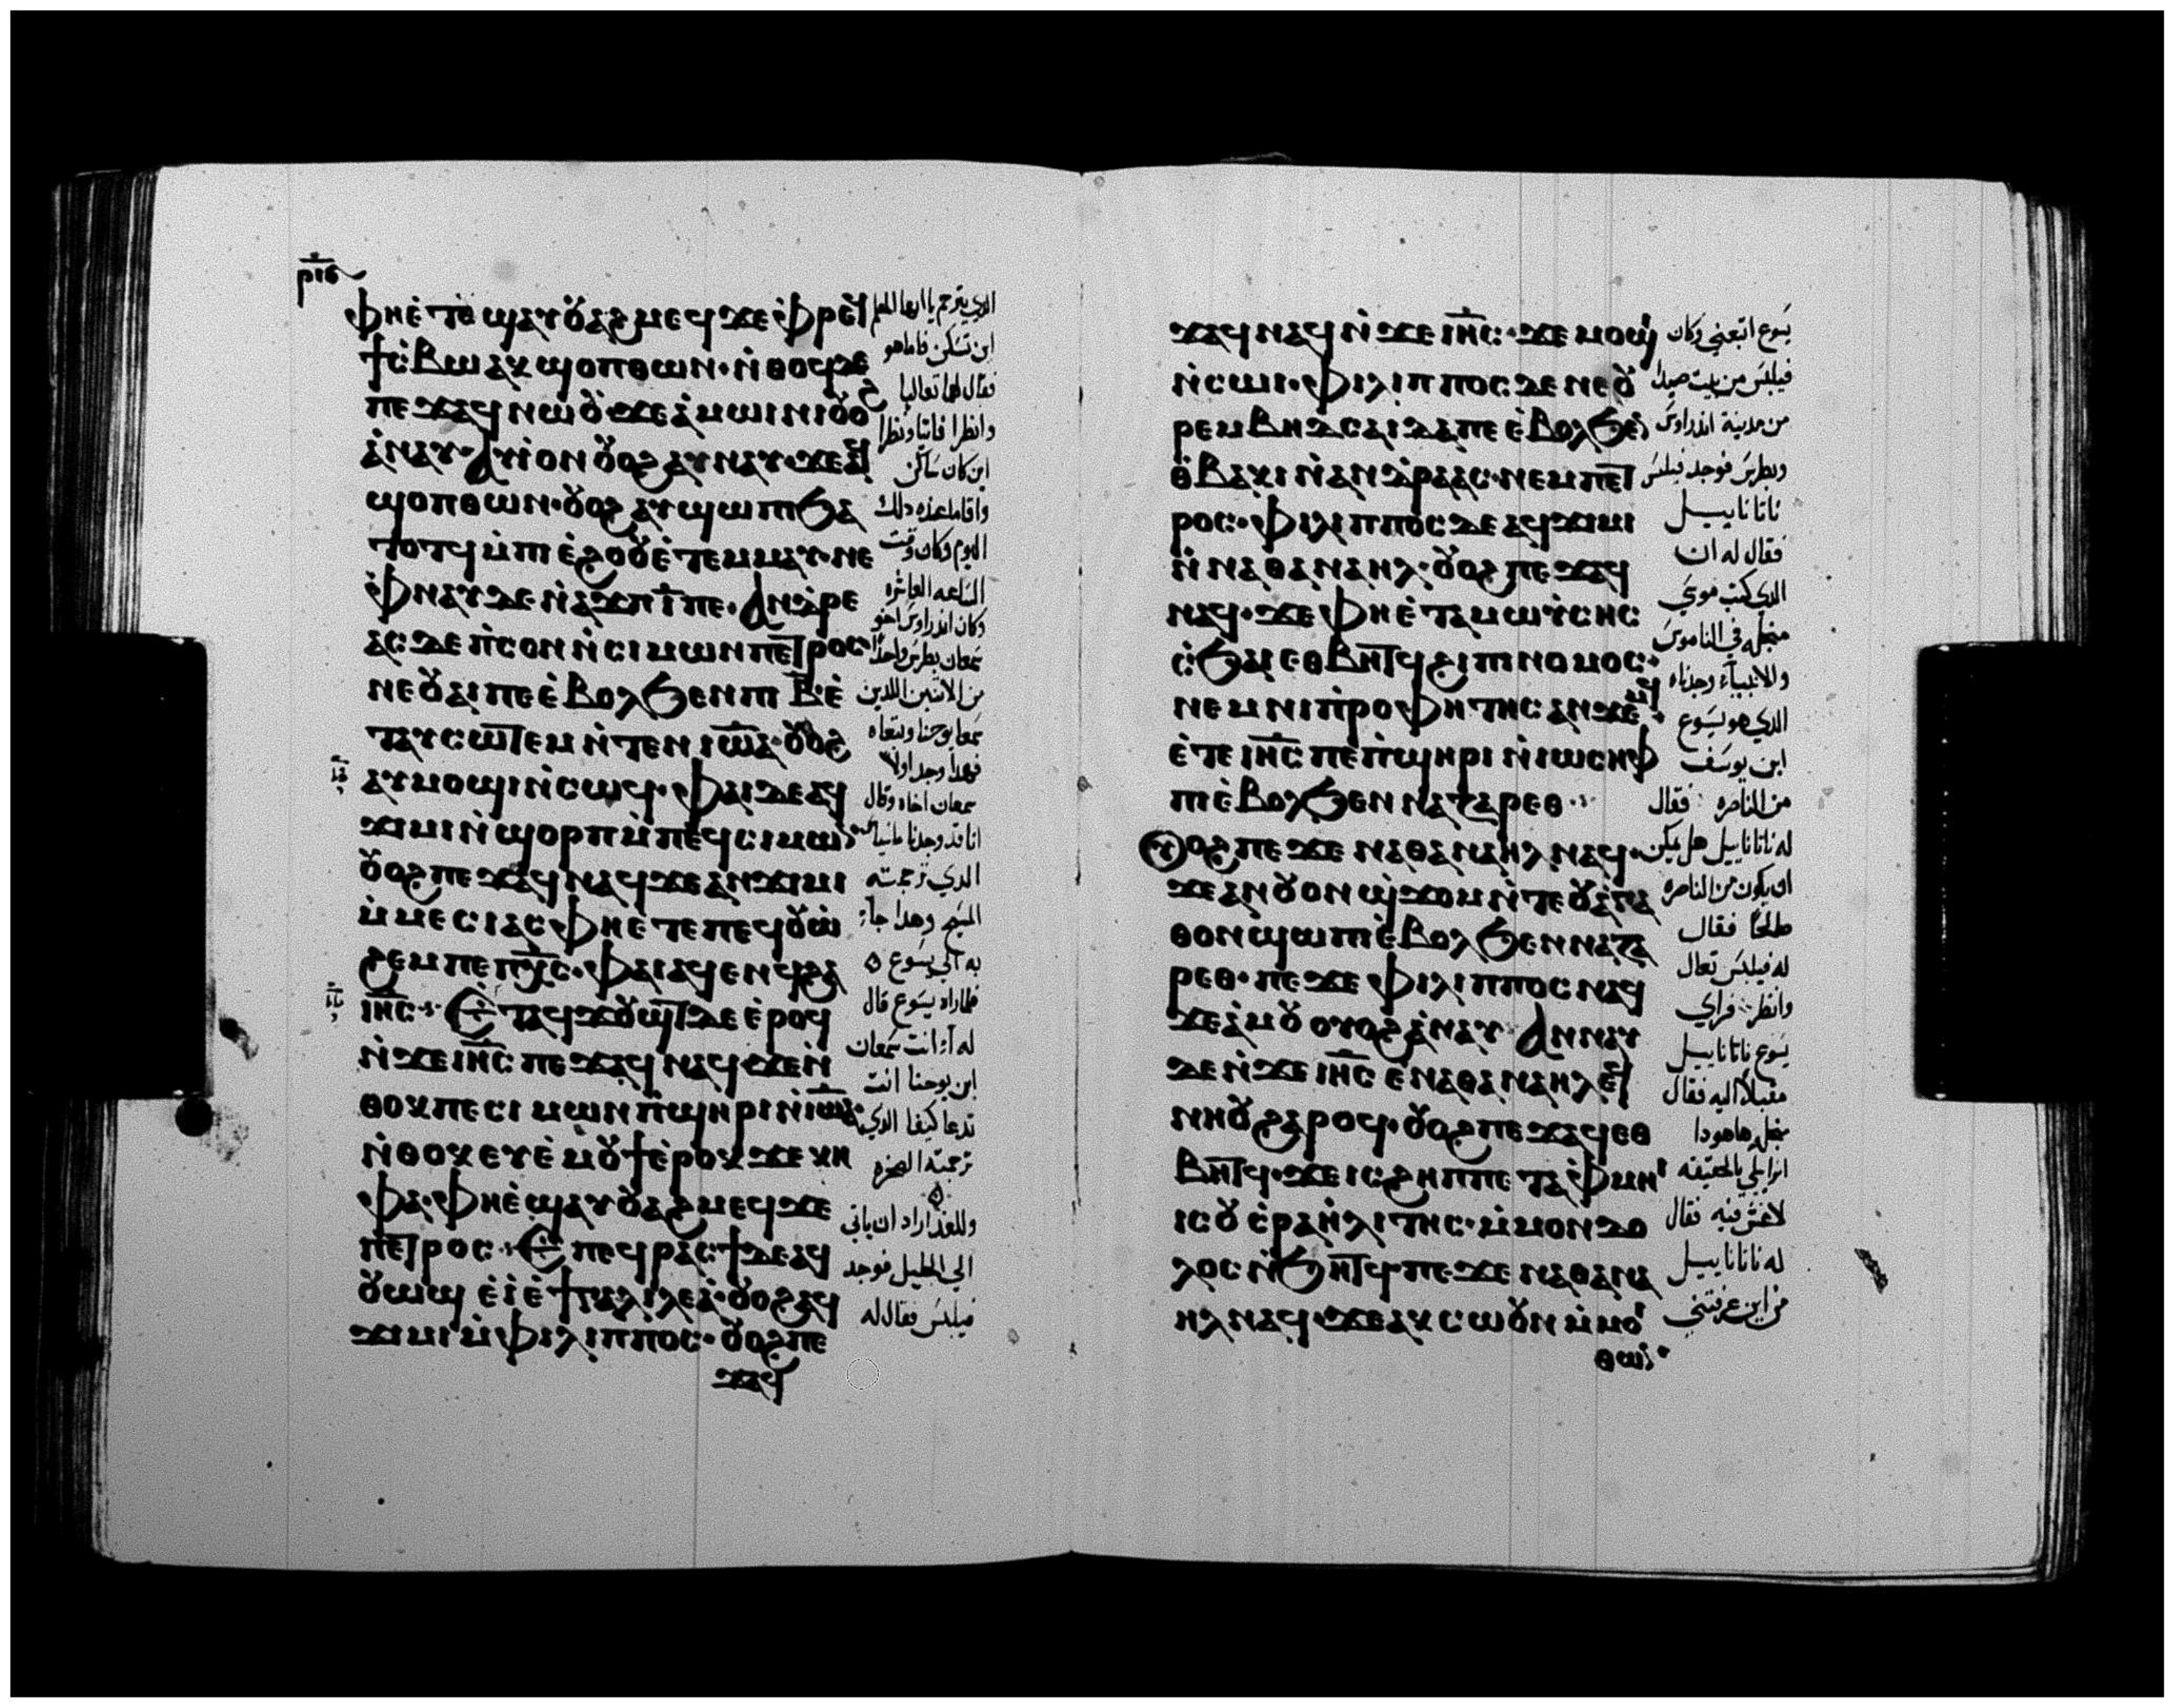 ⲣⲓⲋ
ⲫⲏⲉ̀ⲧⲉ ϣⲁⲩⲟⲩⲁϩⲙⲉϥ ϫⲉ ⲫⲣⲉϥ
ϯⲥ̀ⲃⲱ ⲁⲕϣⲟⲡ ⲑⲱⲛ · ⲛ̀ⲑⲟϥ ⲇⲉ
ⲡⲉϫⲁϥ ⲛⲱⲟⲩ · ϫⲉ ⲁ̀ⲙⲱⲓⲛⲓ ⲟⲩⲟ
ⲁ̀ⲛⲁⲩ · ⲁⲩⲓ̀ ⲟⲛ ⲟⲩⲟϩ ⲁⲩⲛⲁⲩ · ϫⲉ ⲁϥ
ϣⲟⲡ ⲑⲱⲛ · ⲟⲩⲟϩ ⲁⲩϣⲱⲡⲓ ϧⲁ
ⲧⲟⲧϥ ⲙ̀ⲡⲓ ⲉ̀ϩⲟⲟⲩ ⲉ̀ⲧⲉⲙⲙⲁⲩ · ⲛⲉ
ⲫⲛⲁⲩ ⲇⲉ ⲛ̀ⲁϫⲡ ⲓ̅ ⲡⲉ · ⲁⲛⲇⲣⲉ
ⲁⲥ ⲇⲉ ⲡ̀ⲥⲟⲛ ⲛ̀ⲥⲓⲙⲱⲛ ⲡⲉⲧⲣⲟⲥ
ⲛⲉ ⲟⲩⲁⲓ ⲡⲉ ⲉ̀ⲃⲟⲗϧⲉⲛ ⲡⲓ ⲃ̅ ⲉ̀
ⲧⲁⲩⲥⲱⲧⲉⲙ ⲛ̀ⲧⲉⲛ ⲓⲱⲁ · ⲟⲩⲟϩ
ⲁⲩⲙⲟϣⲓ ⲛ̀ⲥⲱϥ · ⲫⲁⲓ ⲇⲉ ⲁϥ
ϫⲓⲙⲓ ⲛ̀ϣⲟⲣⲡ ⲙ̀ⲡⲉϥⲥⲓⲙⲱⲛ
ⲟⲩⲟϩ ⲡⲉϫⲁϥ ⲛⲁϥ ϫⲉ ⲁⲛϫⲓⲙⲓ
ⲙ̀ⲙⲉⲥⲓⲁⲥ ⲫⲏⲉⲧⲉ ⲡⲉϥⲟⲩⲱ
ϩⲉⲙ ⲡⲉ ⲡⲭ̅ⲥ · ⲫⲁⲓ ⲁϥⲉⲛϥ ϩⲁ
ⲓⲏ̅ⲥ ·:· Ⲉⲧⲁϥϫⲟⲩϣⲧ ⲇⲉ ⲉ̀ⲣⲟϥ
ⲛ̀ϫⲉ ⲓⲏ̅ⲥ ⲡⲉϫⲁϥ ⲛⲁϥ ϫⲉ ⲛ̀
ⲑⲟⲕ ⲡⲉ ⲥⲓⲙⲱⲛ ⲡ̀ϣⲏⲣⲓ ⲛ̀ⲓⲱⲁ ·
ⲛ̀ⲑⲟⲕ ⲉⲩⲉ̀ⲙⲟⲩϯ ⲉ̀ⲣⲟⲕ ϫⲉ ⲕⲏ
ⲫⲁ · ⲫⲏⲉ̀ϣⲁⲩⲟⲩⲁϩⲙⲉϥ ϫⲉ
ⲡⲉⲧⲣⲟⲥ ·:· Ⲉⲡⲉϥⲣⲁⲥϯ ⲇⲉ ⲁϥ
ⲟⲩⲱϣ ⲉ̀ⲓ̀ ⲉ̀ϯⲅⲁⲗⲓⲗⲉⲁ̀ · ⲟⲩⲟϩ ⲁϥ
ϫⲓⲙⲓ ⲙ̀ⲫⲓⲗⲓⲡⲡⲟⲥ · ⲟⲩⲟϩ ⲡⲉ
ϫⲁϥ
الذي يترجم يا ايها المعلم
اين تسكن فاما هو
فقال لهما تعاليا
وانظرا فاتيا ونظرا
اين كان ساكن
واقاما عنده ذلك
اليوم وكان وقت
الساعه العاشره
وكان اندراوس اخو
سمعان بطرس واحدا
من الاثنين اللذين
سمعا يوحنا وتبعاه
فهذا وجد اولا
سمعان اخاه وقال
انا قد وجدنا ماسيا
الذي ترجمته
المسيح وهذا جآء
به الي يسوع
فلما راه يسوع قال
له آءنت سمعان
ابن يوحنا انت
تدعا كيفا الذي
ترجمته الصخره
وللغد اراد ان ياتي
الي الجليل فوجد
فيلبس فقال له
ϫⲁϥ ⲛⲁϥ ⲛ̀ϫⲉ ⲓⲏ̅ⲥ · ϫⲉ ⲙⲟϣⲓ
ⲛ̀ⲥⲱⲓ · ⲫⲓⲗⲓⲡⲡⲟⲥ ⲇⲉ ⲛⲉ ⲟⲩ
ⲣⲉⲙⲃⲏⲇⲥⲁⲓⲇⲁ ⲡⲉ ⲉ̀ⲃⲟⲗϧⲉⲛ
ⲑ̀ⲃⲁⲕⲓ ⲛ̀ⲁⲛⲇⲣⲉⲁⲥ · ⲛⲉⲙ ⲡⲉⲧ
ⲣⲟⲥ · ⲫⲓⲗⲓⲡⲡⲟⲥ ⲇⲉ ⲁϥϫⲓⲙⲓ
ⲛ̀ⲛⲁⲑⲁⲛⲁⲏⲗ · ⲟⲩⲟϩ ⲡⲉϫⲁϥ
ⲛⲁϥ · ϫⲉ ⲫⲏⲉ̀ⲧⲁ ⲙⲱⲩ̀ⲥⲏⲥ
ⲥ̀ϧⲁⲓ ⲉⲑⲃⲏⲧϥ ϩⲓ ⲡⲓⲛⲟⲙⲟⲥ ·
ⲛⲉⲙ ⲛⲓⲡ̀ⲣⲟⲫⲏⲧⲏⲥ ⲁⲛϫⲉⲙϥ ·
ⲉ̀ⲧⲉ ⲓⲏ̅ⲥ ⲡⲉ ⲡ̀ϣⲏⲣⲓ ⲛ̀ⲓⲱⲥⲏⲫ
ⲡⲓⲉ̀ⲃⲟⲗϧⲉⲛ ⲛⲁⲍⲁⲣⲉⲑ ·:·
Ⲩⲟϩ ⲡⲉϫⲉ ⲛⲁⲑⲁⲛⲁⲏⲗ ⲛⲁϥ ·
ϫⲉ ⲁⲛ ⲟⲩⲟⲛ ϣ̀ϫⲟⲙ ⲛ̀ⲧⲉ ⲟⲩⲁ̀ⲅⲁ
ⲑⲟⲛ ϣⲱⲡⲓ ⲉ̀ⲃⲟⲗϧⲉⲛ ⲛⲁⲍⲁ
ⲣⲉⲑ · ⲡⲉϫⲉ ⲫⲓⲗⲓⲡⲡⲟⲥ ⲛⲁϥ
ϫⲉ ⲁ̀ⲙⲟⲩ ⲟⲩⲟϩ ⲁ̀ⲛⲁⲩ · ⲁϥⲛⲁⲩ
ⲇⲉ ⲛ̀ϫⲉ ⲓⲏ̅ⲥ ⲉ̀ⲛⲁⲑⲁⲛⲁⲏⲗ ⲉϥ
ⲛⲏⲟⲩ ϩⲁⲣⲟϥ · ⲟⲩⲟϩ ⲡⲉϫⲁϥ ⲉⲑ
ⲃⲏⲧϥ · ϫⲉ ⲓⲥ ϩⲏⲡⲡⲉ ⲧⲁⲫⲙⲏⲓ
ⲓⲥ ⲟⲩ ⲥ̀ⲣⲁⲏ̀ⲗⲓⲧⲏⲥ · ⲙ̀ⲙⲟⲛ ⲇⲟ
ⲗⲟⲥ ⲛ̀ϧⲏⲧϥ · ⲡⲉϫⲉ ⲛⲁⲑⲁⲛⲁ
ⲏⲗ ⲛⲁϥ · ϫⲉ ⲁⲕⲥⲱⲟⲩⲛ ⲙ̀ⲙⲟⲓ
ⲑⲱⲛ ·
يسوع اتبعني وكان
فيلبس من بيت صيدا
من مدينة اندراوس
وبطرس فوجد فيلبس
ناتانايييل
فقال له ان
الذي كتب موسي
مجله في الناموس
والانبيآء وجدناه
الذي هو يسوع
ابن يوسف
من الناصره فقال
له ناتاناييل هل يمكن
ان يكون من الناصره
صالحًا فقال
له فيلبس تعال
وانظر فراي
يسوع ناتاناييل
مقبلاً اليه فقال
مجله هاهوذا
اسراييلي بالحقيقه
لا غش فيه فقال
له ناتاناييل
من اين عرفتني